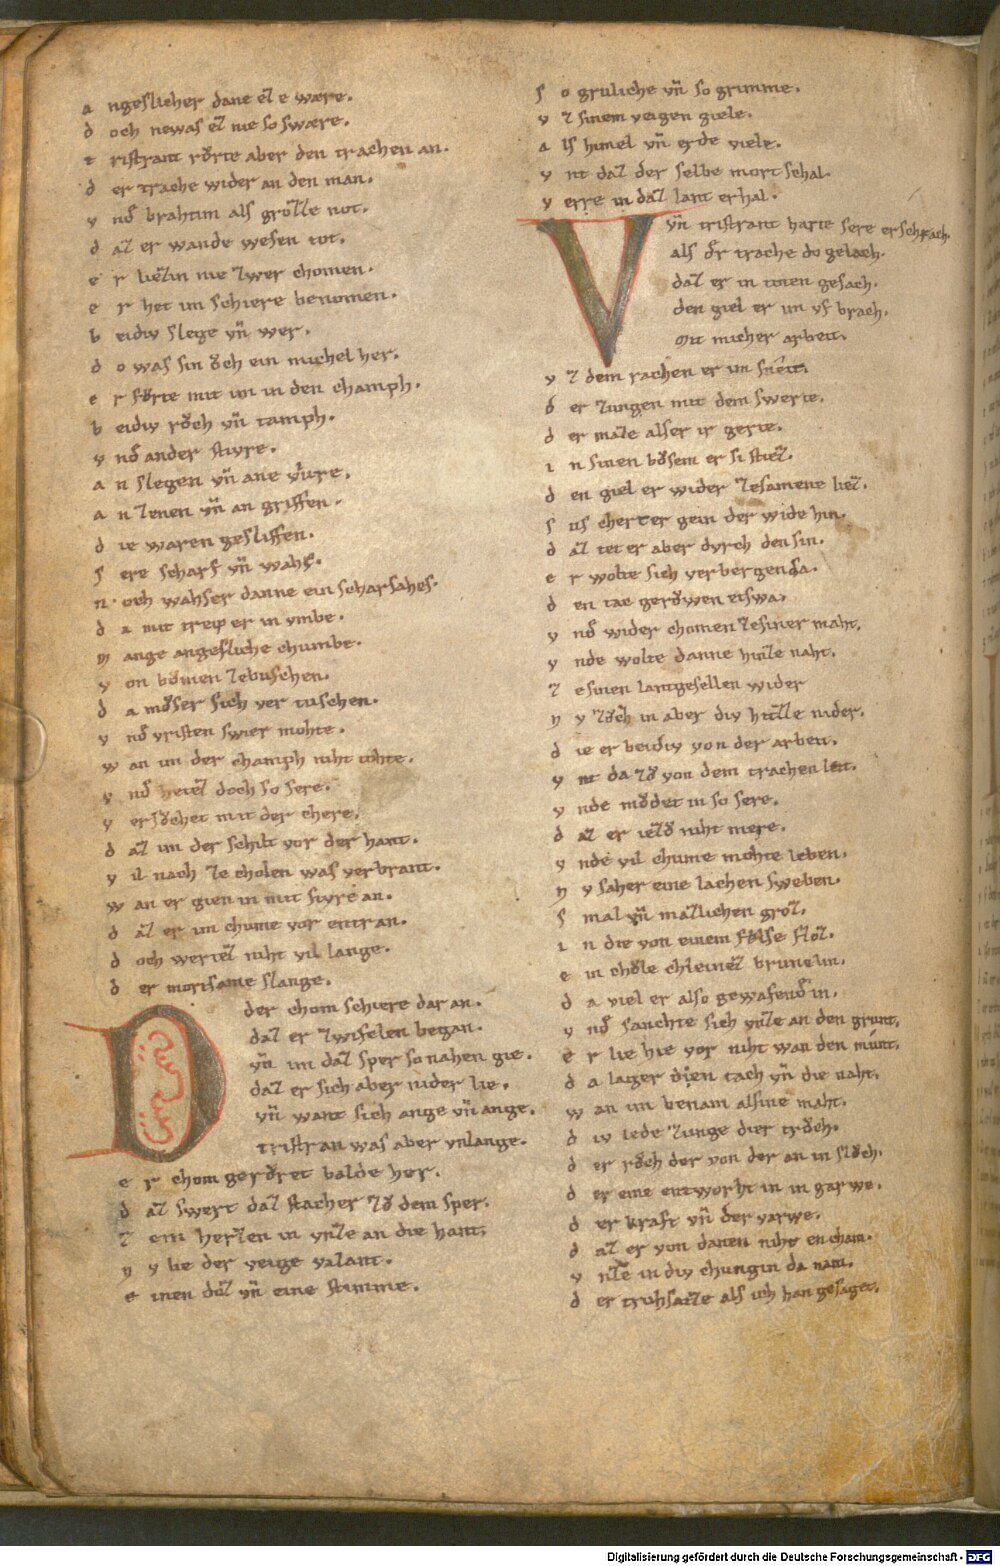 a ngeslicher dane eẓ e wære.
d och newas eẓ nie so swære.
t ristrant růrte aber den trachen an.
d er trache wider an den man.
v nd̄ brahtim als groʒʒe not.
d aʒ er wande wesen tot.
e r lieʒin nie ʒwer chomen.
e r het im schiere benomen.
b eidiv slege vn̄ wer.
d o was sin ŏch ein michel her.
e r fůrte mit im in den champh.
b eidiv rŏch vn̄ tamph.
v nd̄ ander stivre.
a n slegen vn̄ ane vivre.
a n ʒenen vn̄ an griffen.
d ie waren gesliffen.
s ere scharf vn̄ wahs.
n och wahser danne ein scharsahes.
d a mit treip er in vmbe.
m ange angesliche chumbe.
v on bŏmen ʒebuschen.
d a můser sich ver tuschen.
v nd̄ vristen swier mohte.
w an im der champh niht tohte.
v nd̄ heteʒ doch so sere.
v ersůchet mit der chere.
d aʒ im der schilt vor der hant.
v il nach ʒe cholen was verbrant.
w an er gien in mit fivre an.
d aʒ er im chume vor entran.
d och werteʒ niht vil lange.
d er mortsame slange.
D der chom schiere dar an.
daʒ er ʒwiselen began.
vn̄ im daʒ sper so nahen gie.
daʒ er sich aber nider lie.
vn̄ want sich ange vn̄ ange.
tristran was aber vnlange.
e r chom gerŏret balde her.
d aʒ swert daʒ stacher ʒů dem sper.
ʒ em herʒen in vnʒe an die hant.
n v lie der veige valant.
e inen doʒ vn̄ eine stimme.
s o gruliche vn̄ so grimme.
v ʒ sinem veigen giele.
a ls himel vn̄ erde viele.
v nt daʒ der selbe mort schal.
v erre in daʒ lant erhal.
V vn̄ tristrant harte sere erschrach.
als dr̄ trache do gelach.
daʒ er in toten gesach.
den giel er im vf brach.
mit micher arbeit.
v ʒ dem rachen er im sneit.
d er ʒungen mit dem swerte.
d er maʒe alser ir gerte.
i n sinen bŏsem er si stieʒ.
d en giel er wider ʒesamene lieʒ.
s us cherter gein der wide hin.
d aʒ tet er aber dvrch den sin.
e r wolte sich verbergen da.
d en tac gerŏwen etswa.
v nd̄ wider chomen ʒesiner maht.
v nde wolte danne hinʒe naht.
ʒ esinen lantgesellen wider
n v ʒŏch in aber div hitʒe nider.
d ie er beidiv von der arbeit.
v nt da ʒů von dem trachen leit.
v nde můdet in so sere.
d aʒ er ieʒů niht mere.
v nde vil chume mohte leben.
n v saher eine lachen sweben.
s mal vn̄ maʒlichen groʒ.
i n die von einem felse floʒ.
e in chůle chleineʒ brunnelin.
d a viel er also gewafend̄ in.
v nd̄ sanchte sich vnʒe an den grunt.
e r lie hie vor niht wan den munt.
d a lager den tach vn̄ die naht.
w an im benam alsine maht.
d iv leide ʒunge dier trŏch.
d er rŏch der von der an in slŏch.
d er eine entworht in in garwe.
d er kraft vn̄ der varwe.
d aʒ er von danen niht en cham.
v nʒe in div chungin da nam.
d er truhsæʒe als ich han gesaget.
Digitalisierung gefördert durch die Deutsche Forschungsgemeinschaft - DFG